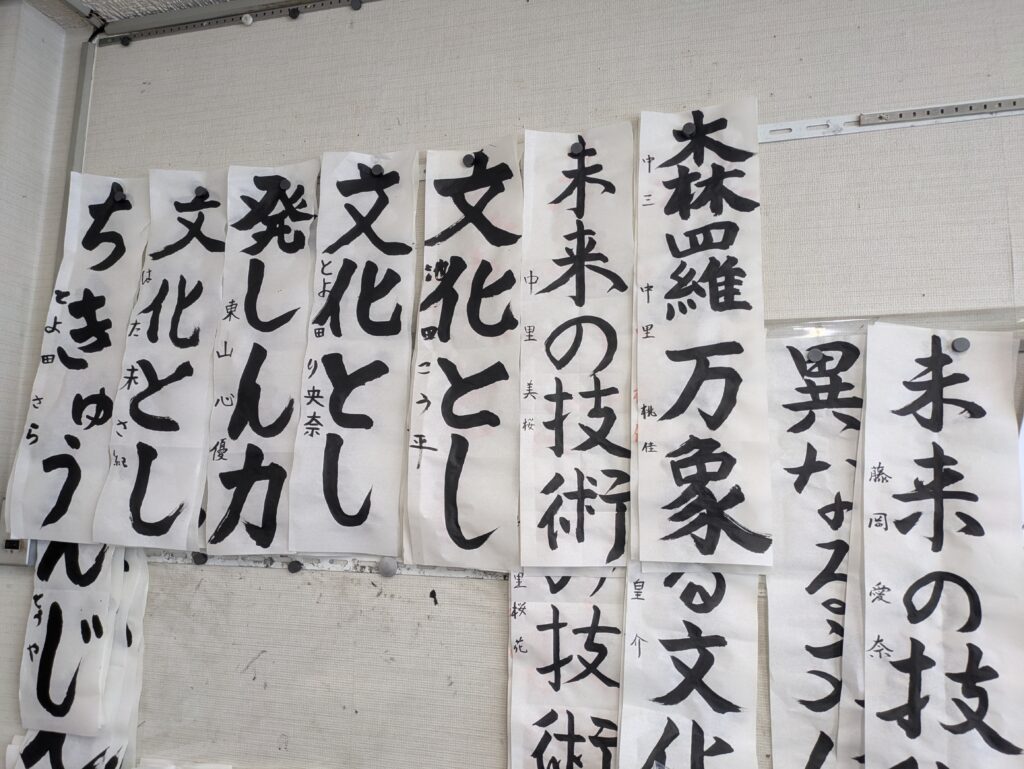 森羅万象
中三 中里 桃佳
未来の技術
中里 美桜
文化とし
池田 こう平
文化とし
とよ田 り央奈
発しん力
東山 心優
文化とし
はた 未さ紀
ちきゅう
とよ田 さら
未来の技
藤岡 愛奈
異なる
る文化
皇介
の技術
里桜花
んじ